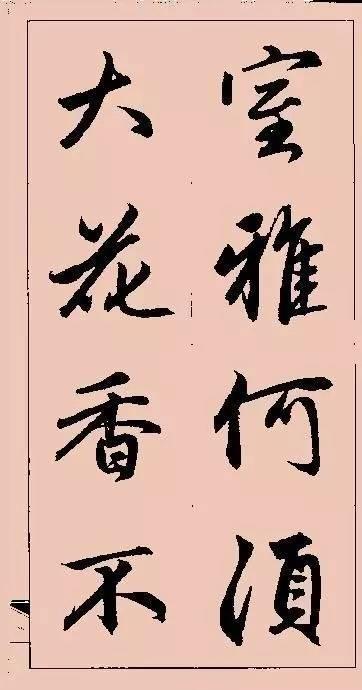 室雅何須
大花香不